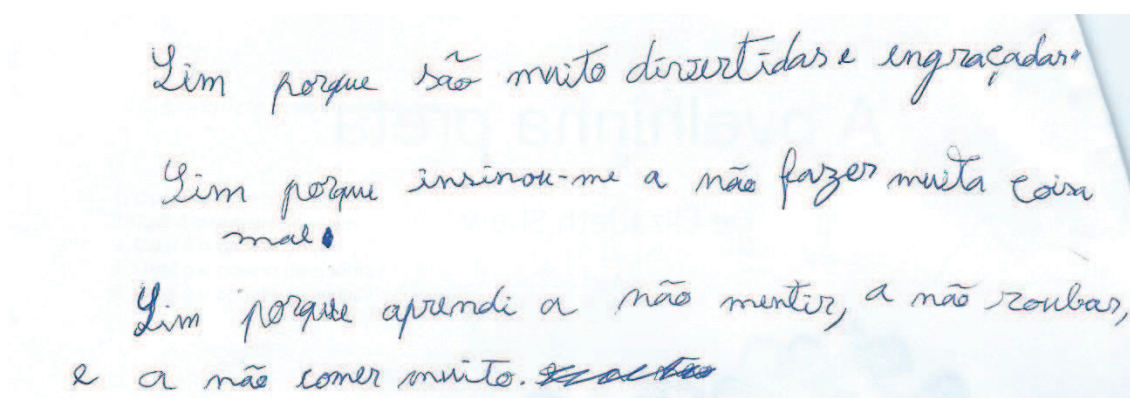 Sim porque são muito divertidas e engraçadas.
Sim porque insinou-me a não fazer muita coisa
mal.
Sim porque aprendi a não mentir, a não roubar,
e a não comer muito.